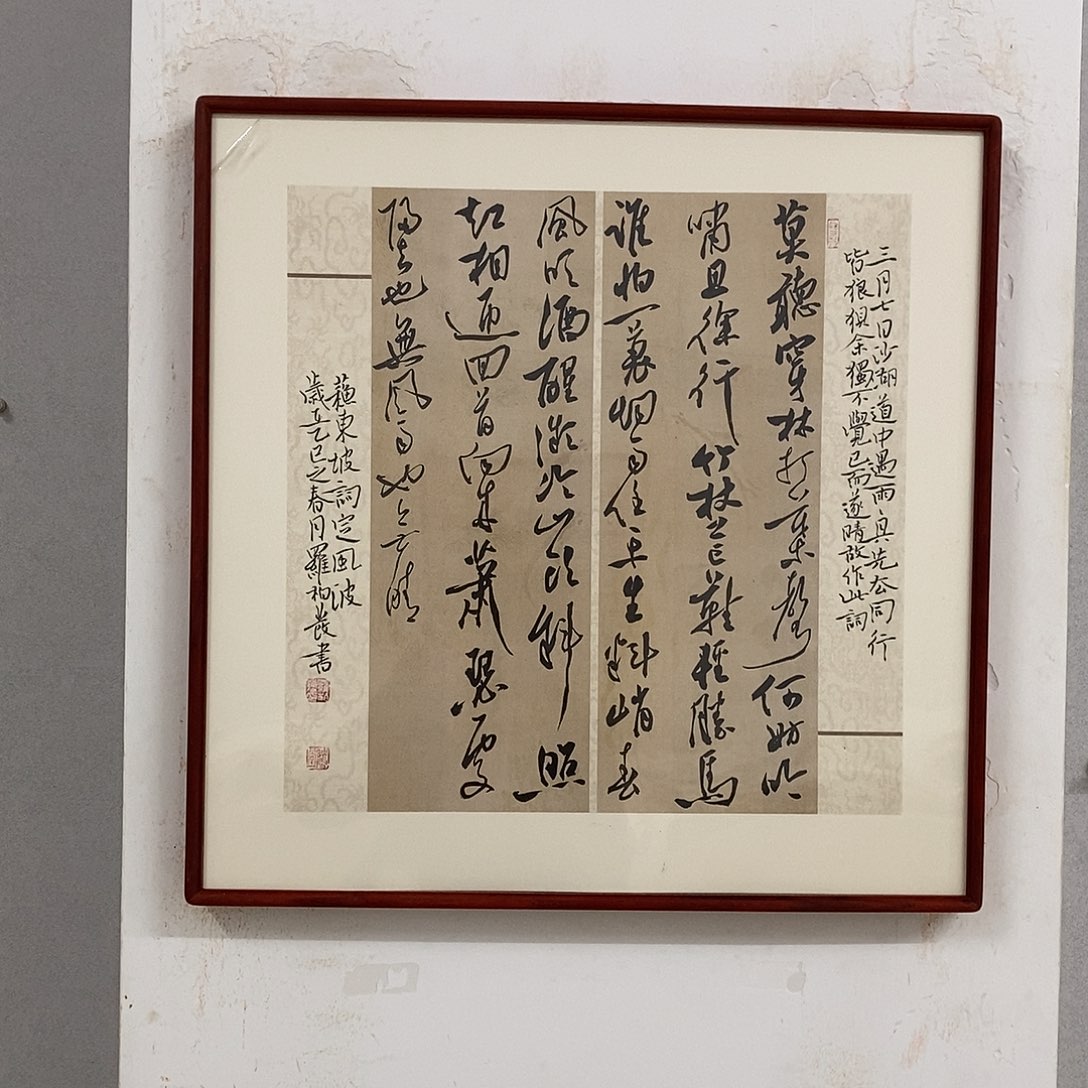 三月七日沙湖道中遇雨具先去同行
皆狼狽余獨不覺已而遂晴故作此詞
莫聽穿林打葉聲何妨吟
嘯且徐行竹杖芒鞋輕勝馬
誰怕一蓑烟雨任平生料峭春
風吹酒醒微冷山頭斜照
却相迎回首向來蕭瑟處
歸去也無風雨也無晴
蘇東坡詞定風波
歲在乙巳之春月羅書